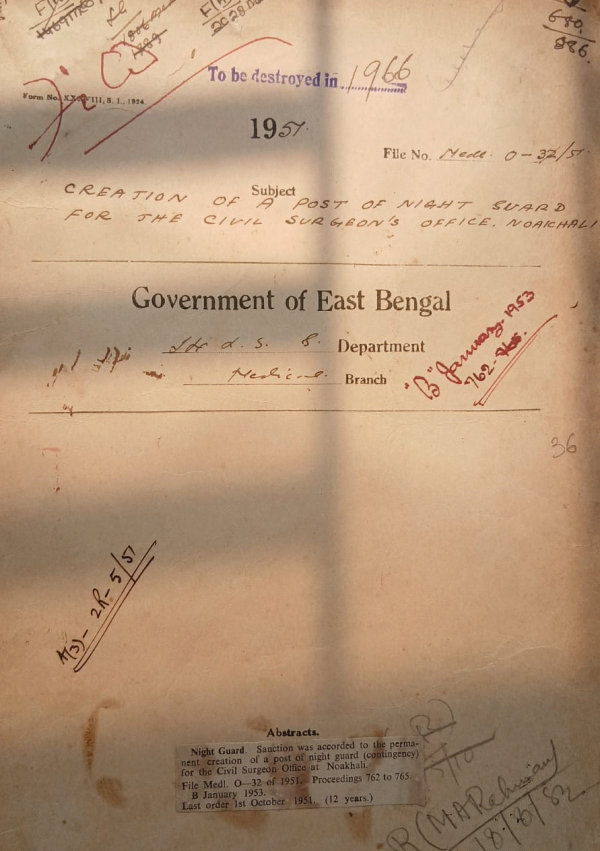 680.
886.
To be destroyed in 1966
Form No. XXXVIII, S. I., 1954
1951.
File No. Medl. O-32/51
Subject
CREATION OF A POST OF NIGHT GUARD
FOR THE CIVIL SURGEON'S OFFICE, NOAKHALI
Government of East Bengal
Department
Medical Branch
"B" January. 1953
762-765.
36
A(3)- 2R-5/51
Abstracts.
Night Guard. Sanction was accorded to the perma-
nent creation of a post of night guard (contingency)
for the Civil Surgeon Office at Noakhali.
File Medl. O—32 of 1951. Proceedings 762 to 765.
B January 1953.
Last order 1st October 1951. (12 years.)
R(MARahman)